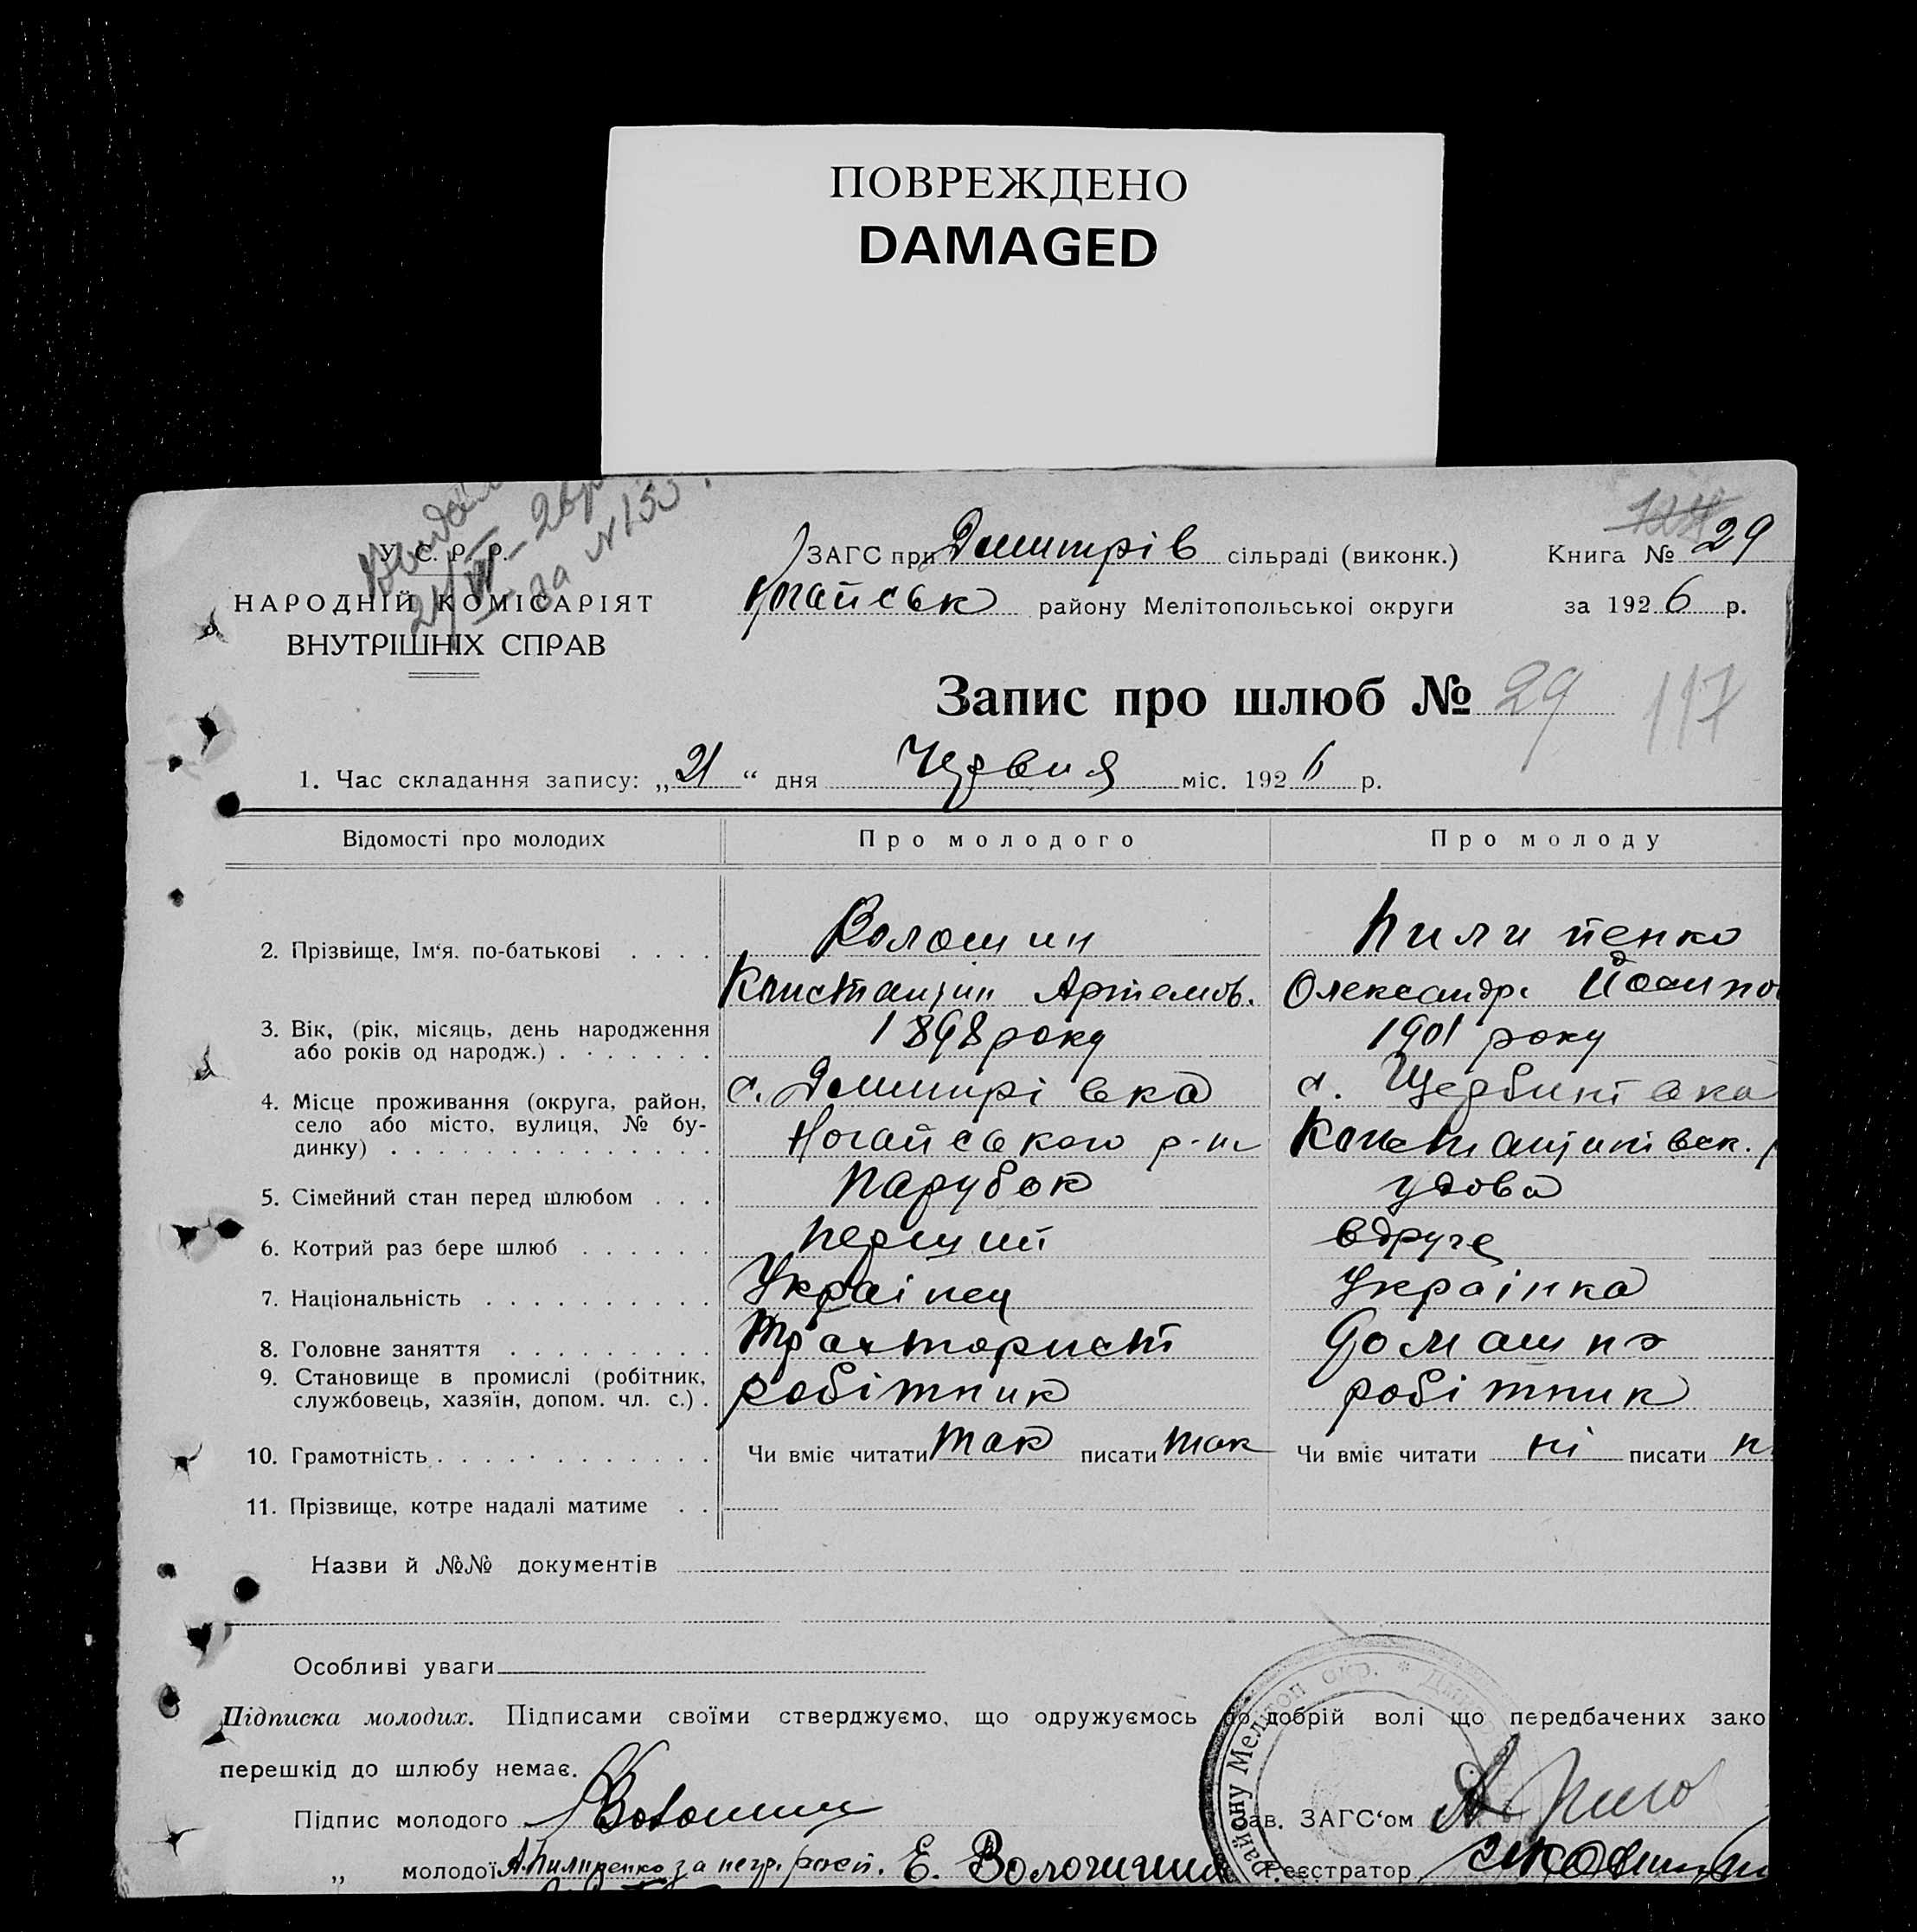 ПОВРЕЖДЕНО
DAMAGED
за №150.
У. С. Р. Р.
НАРОДНІЙ КОМІСАРІЯТ
ВНУТРІШНІХ СПРАВ
ЗАГС при Дмитрів сільраді (виконк.)
Ногайськ району Мелітопольської округи
Книга № 29
за 1926 р.
Запис про шлюб № 29 117
1. Час складання запису: „21“ дня Червня міс. 1926 р.
Відомості про молодих Про молодого Про молоду
2. Прізвище, Ім‘я. по-батькові . . . . Волошин Пилипенко
Константин Артемов. Олександра Йосипо
3. Вік, (рік, місяць, день народження
або років од народж.) . . . . . . . 1898 року 1901 року
4. Місце проживання (округа, район,
село або місто, вулиця, № бу-
динку) . . . . . . . . . . . . . .
с. Дмитрівка Ногайського р-н
с. Щербинівка Константинівск.
5. Сімейний стан перед шлюбом . . . парубок удова
6. Котрий раз бере шлюб . . . . . . перший вдруге
7. Національність . . . . . . . . . . Українец Українка
8. Головне заняття . . . . . . . . . Трахторист Домашнэ
9. Становище в промислі (робітник,
службовець, хазяїн, допом. чл. с.) . робітник робітник
10. Грамотність . . . . . . . . . . . . Чи вміє читати так писати так Чи вміє читати ні писати н
11. Прізвище, котре надалі матиме . .
Назви й №№ документів
Особливі уваги
Підписка молодих. Підписами своїми стверджуємо, що одружуємось по добрій волі що передбачених зако
перешкід до шлюбу немає.
Підпис молодого Волошин Зав. ЗАГС‘ом
„ молодої А. Пилипенко за негр. росп. Е. Волошина Реєстратор
району Мелітоп окр. * Дмит